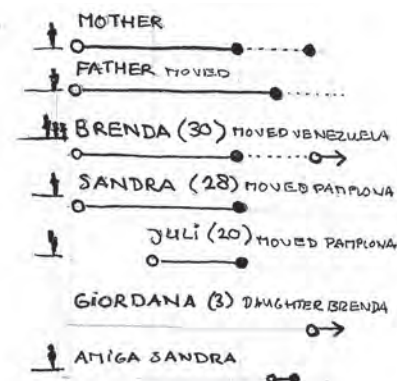 MOTHER
FATHER MOVED
BRENDA (30) MOVED VENEZUELA
SANDRA (28) MOVED PAMPLONA
JULI (20) MOVED PAMPLONA
GIORDANA (3) DAUGHTER BRENDA
AMIGA SANDRA